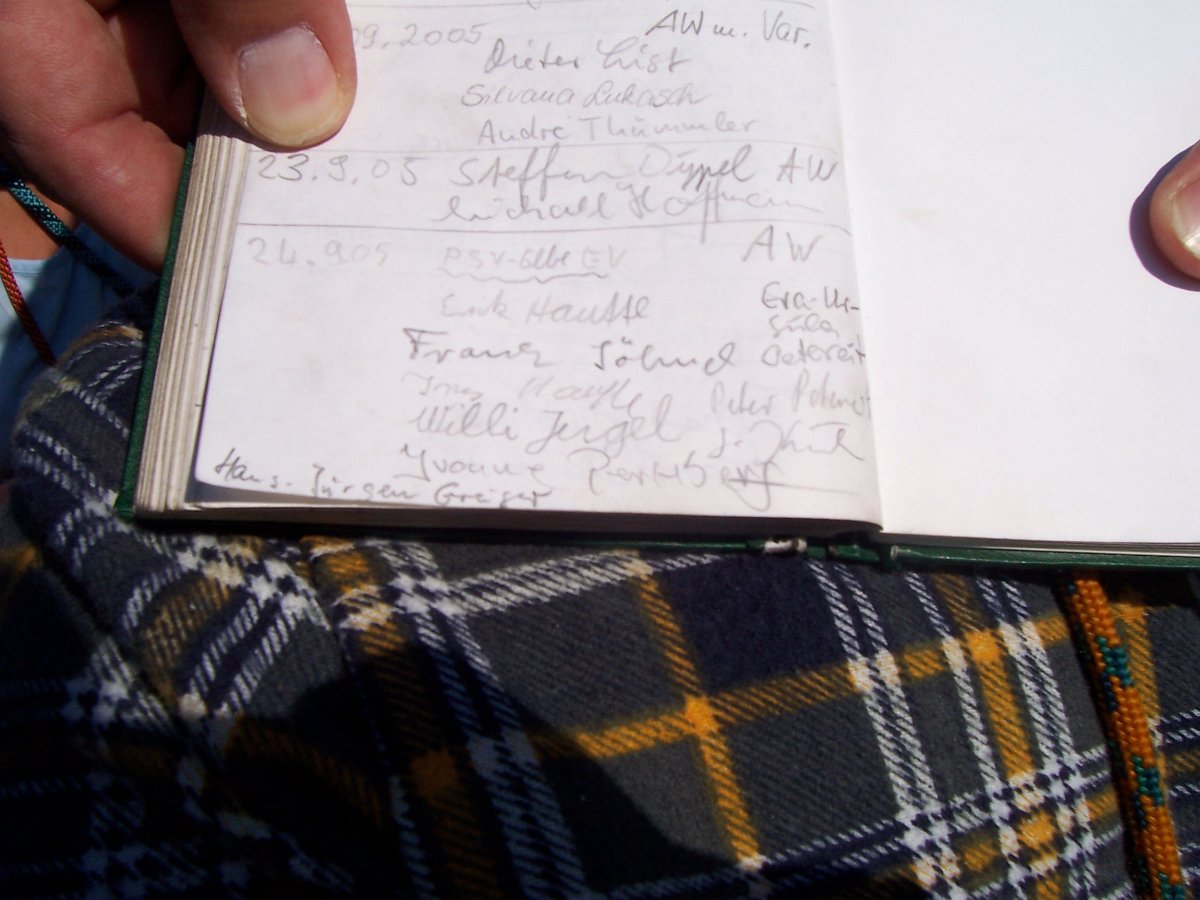 09.2005 AW m. Var.
Dieter List
Silvana Lukasch
André Thümmler
23.9.05 Steffen Düppel AW
Michael Hoffmann
24.9.05 PSV-Elbe EV AW
Hauffe Eva-Ur-
Franz Söhnel sula
Hauffe Peter
Willi Jergel
Yvonne
Hans-Jürgen Greiger